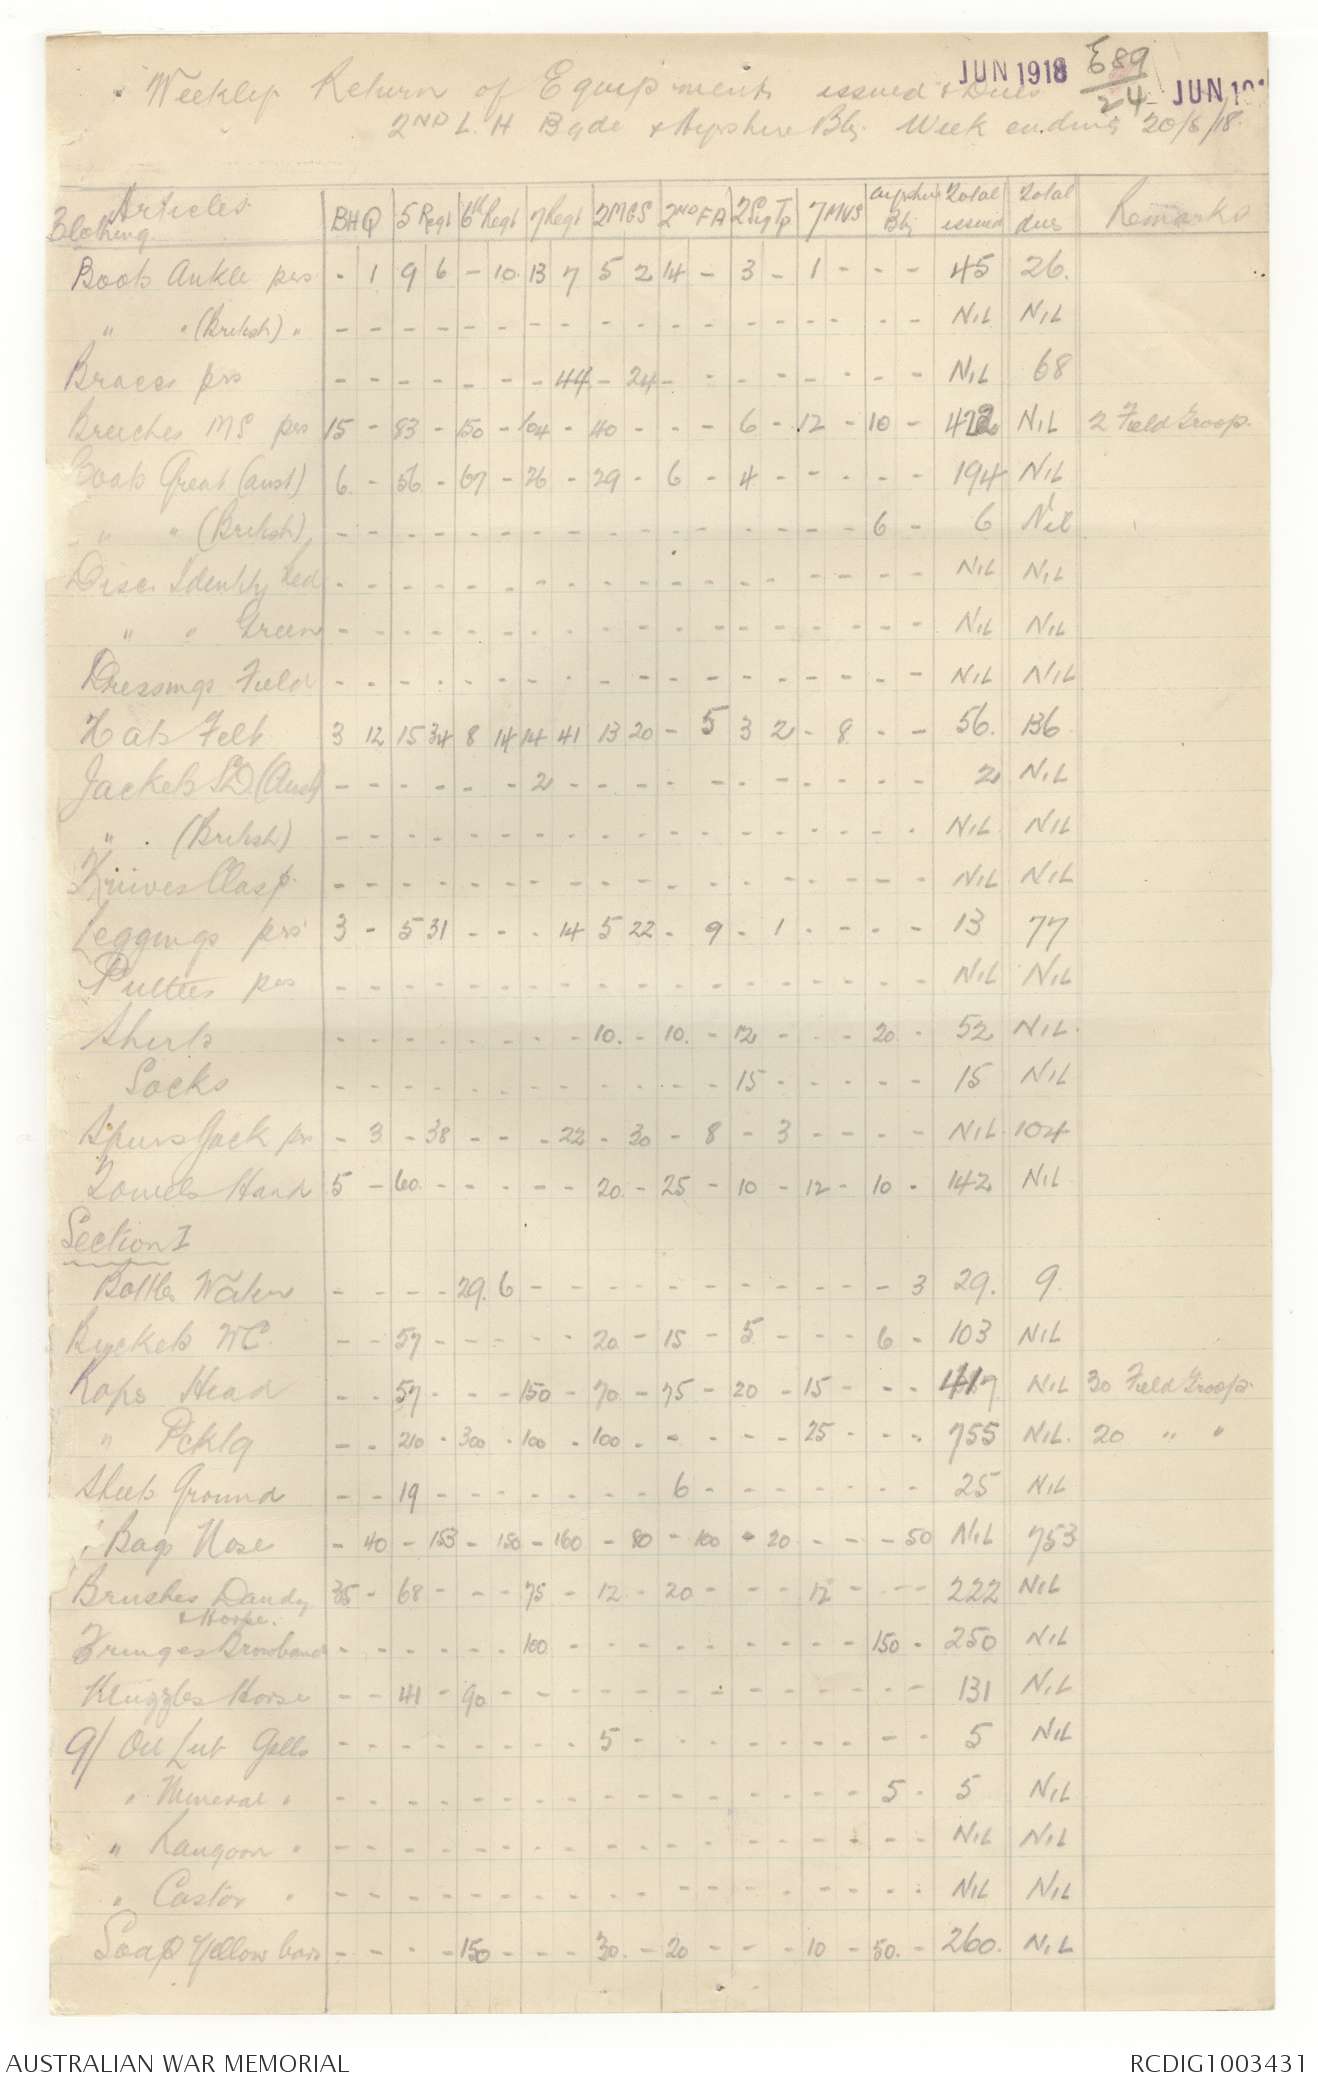 JUN 1918 E 89/24 JUN 191
Weekly Return of Equipments issued & Dues
2ND L. H Bgde & Ayrshire Bty. Week ending 20/6/18.
Articles BHQ 5 Regt 6th Regt 7 Regt 2 MGS 2ND FA 2 Sig Tp 7 MVS Ayrshire Bty Total issued Total dues Remarks
Clothing
Boots Ankle prs - 1 9 6 - 10 13 7 5 2 14 - 3 - 1 - - - 45 26.
" " (British) " - - - - - - - - - - - - - - - - - - NIL NIL
Braces prs - - - - - - - 44 - 24 - - - - - - - - NIL 68
Breeches MS prs 15 - 83 - 150 - 104 - 40 - - - 6 - 12 - 10 - 422 NIL 2 Field Troop.
Coats Great (Aust) 6 - 56 - 67 - 26 - 29 - 6 - 4 - - - - - 194 NIL
" " (British) - - - - - - - - - - - - - - - - 6 - 6 Nil
Discs Identity Red - - - - - - - - - - - - - - - - - - NIL NIL
" " Green - - - - - - - - - - - - - - - - - - NIL NIL
Dressings Field - - - - - - - - - - - - - - - - - - NIL NIL
Hats Felt 3 12 15 34 8 14 14 41 13 20 - 5 3 2 - 8 - - 56. 136
Jackets SD (Aust) - - - - - - 2 - - - - - - - - - - - 2 NIL
" . (British) - - - - - - - - - - - - - - - - - - NIL NIL
Knives Clasp - - - - - - - - - - - - - - - - - - NIL NIL
Leggings prs 3 - 5 31 - - - 14 5 22 - 9 - 1 - - - - 13 77
Puttees prs - - - - - - - - - - - - - - - - - - NIL NIL
Shirts - - - - - - - - 10. - 10. - 12 - - - 20 - 52 NIL.
Socks - - - - - - - - - - - - 15 - - - - - 15 NIL
Spurs Jack prs - 3 - 38 - - - 22 - 30 - 8 - 3 - - - - NIL. 104
Towels Hand 5 - 60 - - - - - 20 - 25 - 10 - 12 - 10 - 142 NIL
Section I
Bottles Water - - - - 29. 6 - - - - - - - - - - - 3 29. 9
Buckets WC - - 57 - - - - - 20 - 15 - 5 - - - 6 - 103 NIL
Rops Head - - 57 - - - 150 - 70 - 75 - 20 - 15 - - - 417 NIL 30 Field Troop.
" Pcktg - - 210 - 300 - 100 - 100 - - - - - 25 - - - 755 NIL. 20 " "
Sheets Ground - - 19 - - - - - - - 6 - - - - - - - 25 NIL
Bags Nose - 40 - 153 - 150 - 160 - 80 - 100 - 20 - - - 50 NIL 753
Brushes Dandy 35 - 68 - - - 75 - 12 - 20 - - - 12 - - - 222 NIL
& Horse.
Fringes Browband - - - - - - 100 - - - - - - - - - 150 - 250 NIL
Muzzles Horse - - 41 - 90 - - - - - - - - - - - - - 131 NIL
9/ Oil Lub Galls - - - - - - - - 5 - - - - - - - - - 5 NIL
" Mineral " - - - - - - - - - - - - - - - - 5 - 5 NIL
" Rangoon " - - - - - - - - - - - - - - - - - - NIL NIL
" Castor " - - - - - - - - - - - - - - - - - - NIL NIL
Soap Yellow bars - - - - 150 - - - 30. - 20 - - - 10 - 50. - 260. NIL
AUSTRALIAN WAR MEMORIAL RCDIG1003431